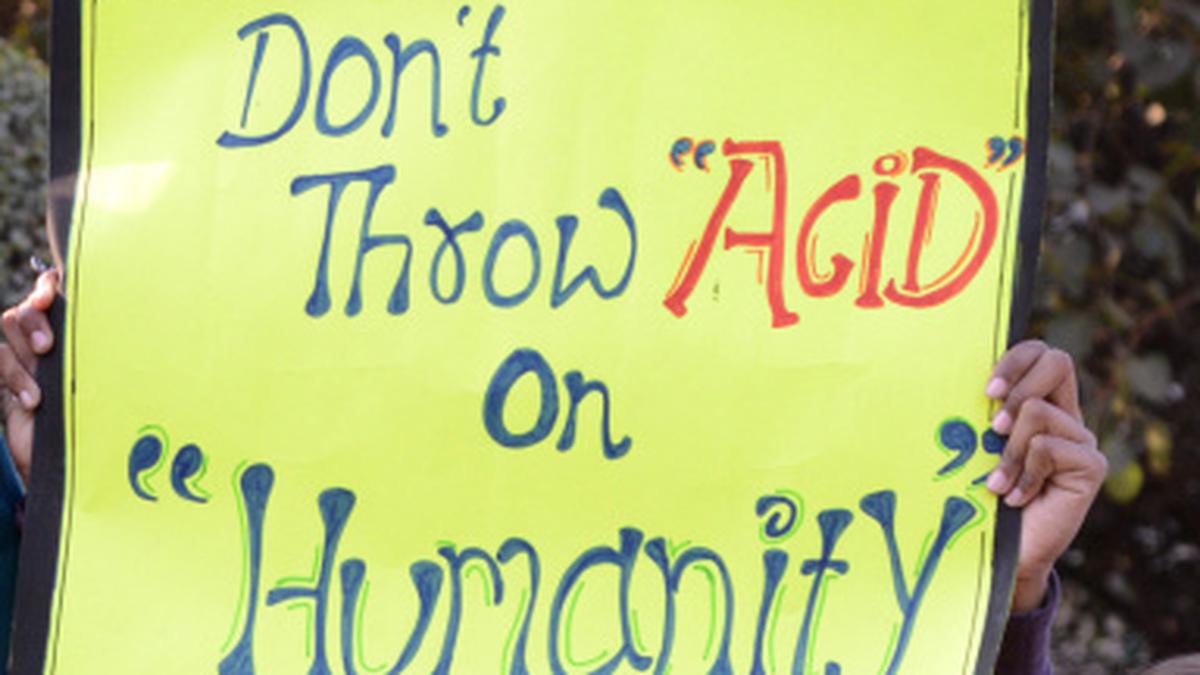 Don't
Throw "AciD"
On
"Humanity"